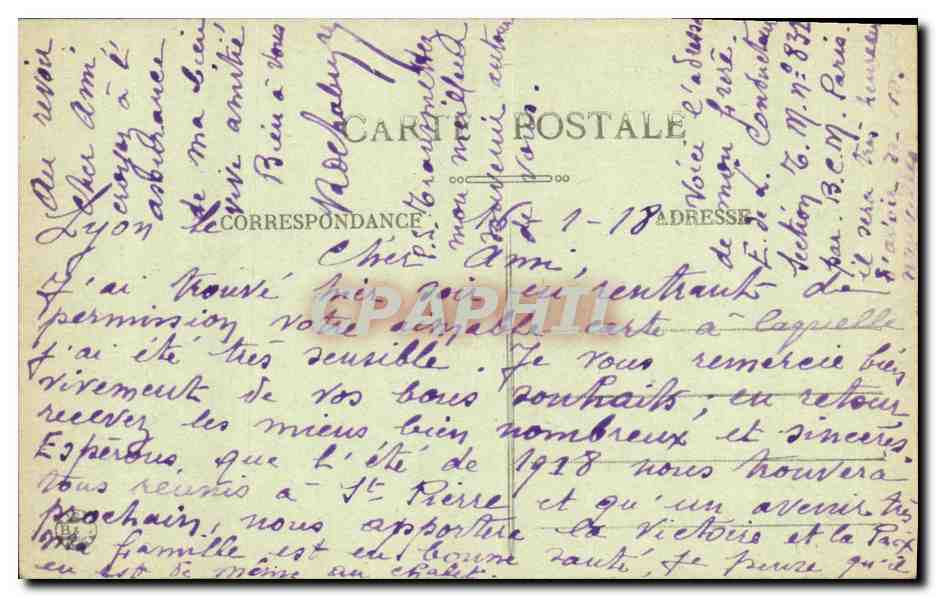 CARTE POSTALE
CORRESPONDANCE
ADRESSE
Lyon le 16-1-18
Cher Ami,
J'ai trouvé hier soir en rentrant de
permission votre aimable carte à laquelle
j'ai été très sensible. Je vous remercie bien
vivement de vos bons souhaits; en retour
recevez les miens bien nombreux et sincères.
Espérons que l'été de 1918 nous trouvera
tous réunis à St Pierre et qu'un avenir très
prochain, nous apportera la victoire et la Paix
Ma famille est en bonne santé, je pense qu'il
en est de même au chalet.
Au revoir
cher ami
croyez à l'
assurance
de ma bien
vive amitié
Bien à vous
P.S. Transmettez
mon meilleur
souvenir autour
de vous.
Voici l'adresse
de mon frère.
E. de L. Conducteur
Section T. M. n° 832
par. B. C. M. Paris.
il sera très heureux
d'avoir de vos
CPAPHIL